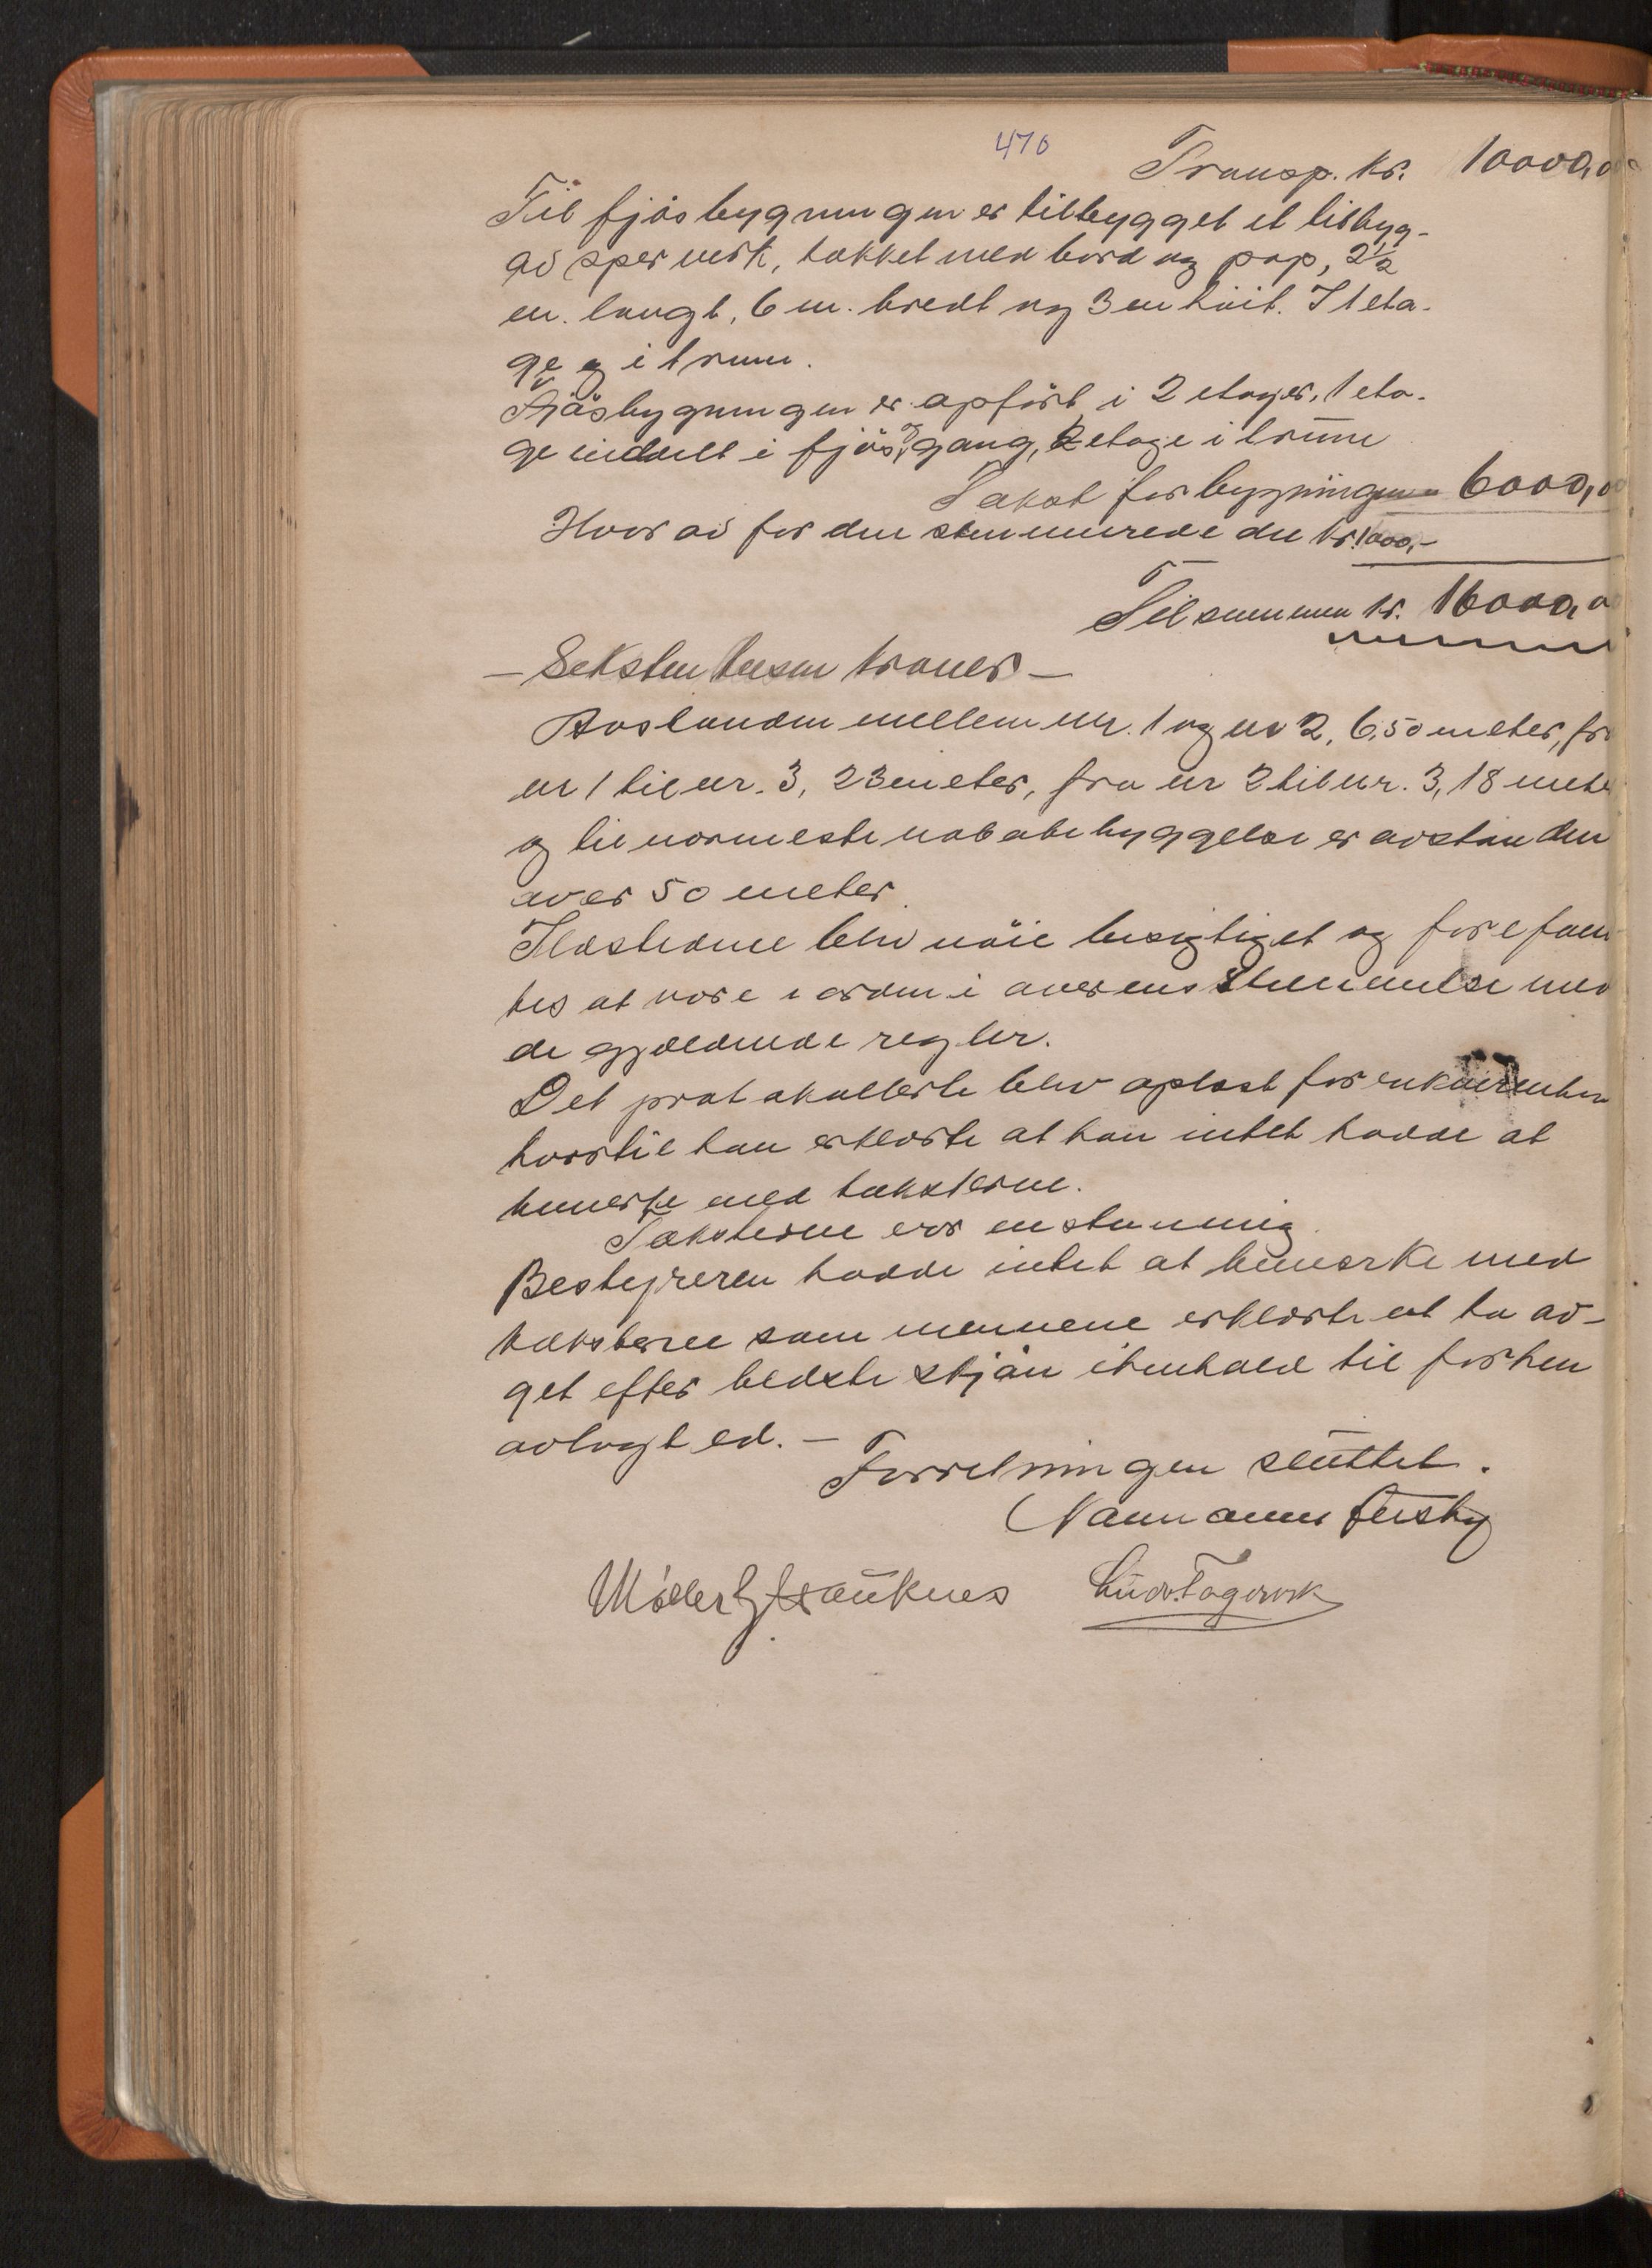 470
Transp. kr. 10000,0
Til fjøsbygningen er tilbygget et tilbyg-
av sperverk, tækket med bord og pap, 2½
m. langt, 6 m. bredt og 3 m høit. I 1 eta-
ge og i 1 rum.
Fjøsbygningen er opført i 2 etager, 1 eta-
ge inddelt i fjøs og gang, 2 etage i 1 rum
Takst for bygningen 6000,00
Hvorav for den stenmurede del kr. 1000,-
Tilsammen kr. 16000,00
- Seksten tusen kroner -
Avstanden mellem nr. 1 og nr 2, 6,50 meter, fra
nr 1 til nr. 3, 23 meter, fra nr 2 til nr. 3, 18 mete
og til nærmeste nabobebyggelse er avstanden
over 50 meter.
Ildstederne blev nøie besigtiget og forefan
tes at være i orden i overensstemmelse med
de gjældende regler.
Det protokollerte blev oplæst for rekvirenten
hvortil han erklærte at han intet hadde at
bemerke med taksterne.
Taksterne er enstemmig.
Bestyreren hadde intet at bemerke med
taksterne som mennene erklærte at ha av-
get efter bedste skjøn i henhold til forhen
avlagt ed. -
Forretningen sluttet.
Ludv. Fagervik